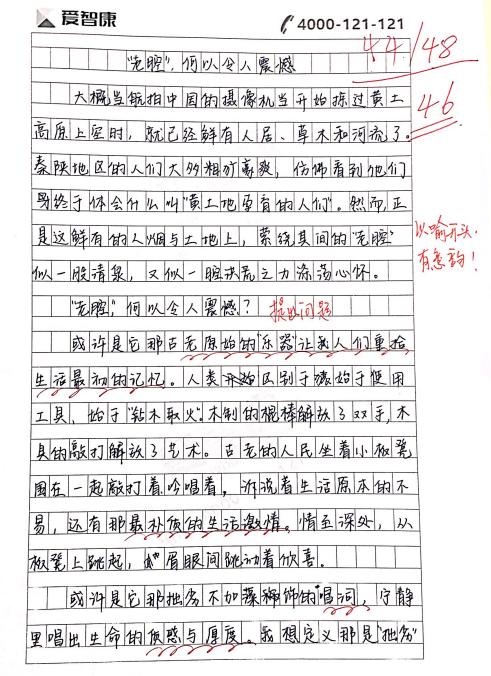 爱智康
4000-121-121
44/48
46
"老腔",何以令人震撼
大概当航拍中国的摄像机当开始掠过黄土
高原上空时，就已经鲜有人居、草木和河流了。
秦陕地区的人们大多粗犷豪爽，仿佛看到他们
身终于体会什么叫"黄土地孕育的人们"。然而，正
是这鲜有的人烟与土地上，萦绕其间的"老腔"
似一股清泉，又似一腔洪荒之力涤荡心怀。
以喻开头，
有意韵！
"老腔"，何以令人震撼？
提出问题
或许是它那古老原始的"乐器"让我人们重拾
生活最初的记忆。人类开始区别于猿始于使用
工具，始于"钻木取火"。木制的棍棒解放了双手，木
具的敲打解放了艺术。古老的人民坐着小板凳
围在一起敲打着吟唱着，诉说着生活原本的不
易，还有那最朴质的生活激情。情至深处，从
板凳上跳起，眉眼间跳动着欣喜。
或许是它那拙劣不加藻辞饰的"唱词，宁静
里唱出生命的质感与厚度。我想定义那是"拙劣"